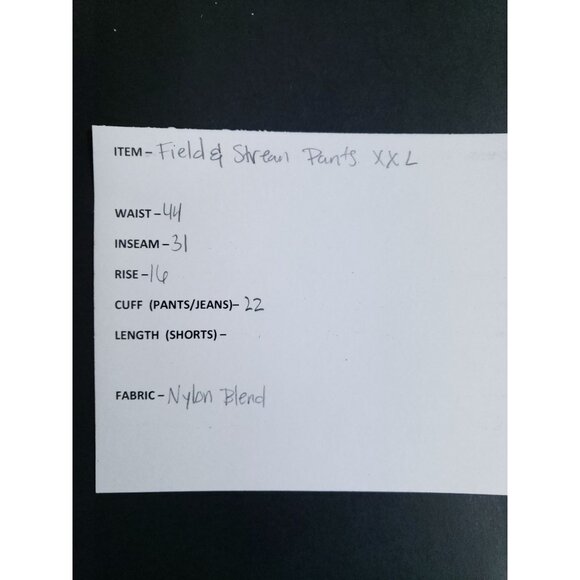 ITEM- Field & Stream Pants XXL
WAIST-44
INSEAM-31
RISE-16
CUFF (PANTS/JEANS)- 22
LENGTH (SHORTS) -
FABRIC- Nylon Blend